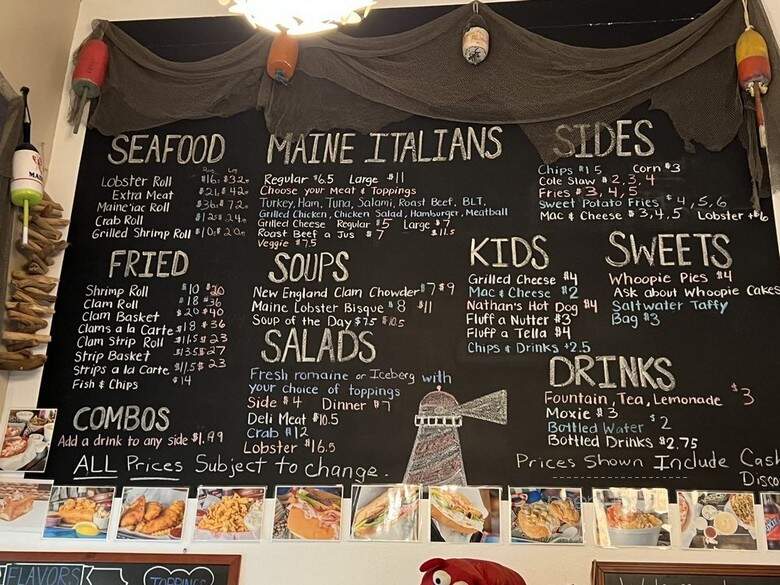 SEAFOOD
Reg Lg
Lobster Roll $16. $32.
Extra Meat $21. $42.
Maine'iac Roll $36. $72.
Crab Roll $12. $24.
Grilled Shrimp Roll $10. $20.
FRIED
Shrimp Roll $10 $20
Clam Roll $18 $36
Clam Basket $20 $40
Clams a la Carte $18 $36
Clam Strip Roll $11.5 $23
Strip Basket $13.5 $27
Strips a la Carte $11.5 $23
Fish & Chips $14
COMBOS
Add a drink to any side $1.99
MAINE ITALIANS
Regular $6.5 Large $11
Choose your Meat & Toppings
Turkey, Ham, Tuna, Salami, Roast Beef, BLT,
Grilled Chicken, Chicken Salad, Hamburger, Meatball
Grilled Cheese Regular $5 Large $7
Roast Beef a Jus $7 $11.5
Veggie $7.5
SOUPS
New England Clam Chowder $7 $9
Maine Lobster Bisque $8 $11
Soup of the Day $7.5 $10.5
SALADS
Fresh romaine or Iceberg with
your choice of toppings
Side $4 Dinner $7
Deli Meat $10.5
Crab $12
Lobster $16.5
SIDES
Chips $1.5 Corn $3
Cole Slaw $2, 3, 4
Fries $3, 4, 5
Sweet Potato Fries $4, 5, 6
Mac & Cheese $3, 4, 5 Lobster +$6
KIDS
Grilled Cheese $4
Mac & Cheese $2
Nathan's Hot Dog $4
Fluff a Nutter $3
Fluff a Tella $4
Chips & Drinks +2.5
SWEETS
Whoopie Pies $4
Ask about Whoopie Cakes
Saltwater Taffy
Bag $3
DRINKS
Fountain, Tea, Lemonade $3
Moxie $3
Bottled Water $2
Bottled Drinks $2.75
ALL Prices Subject to change.
Prices Shown Include Cash
Disco
FLAVORS
TOPPINGS